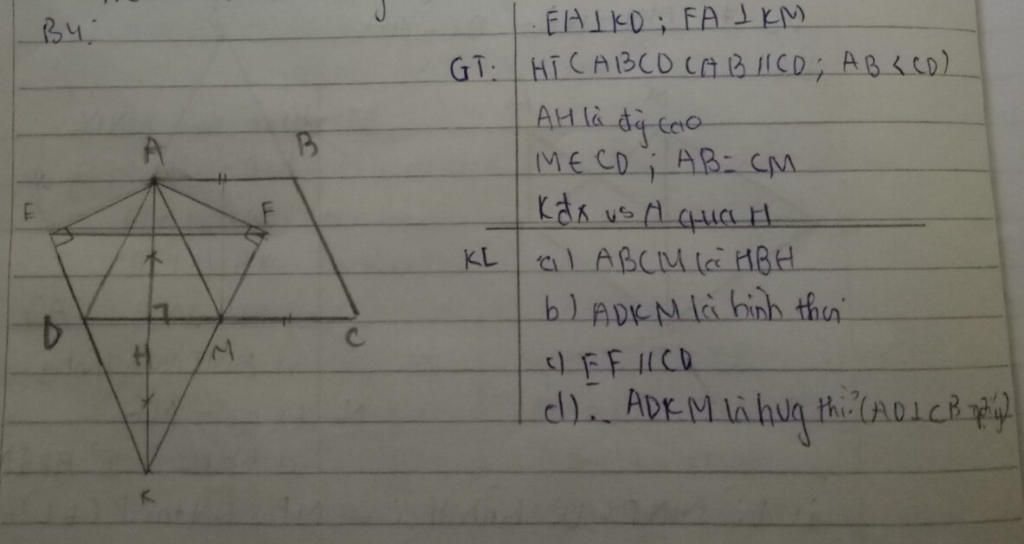 B4:
EA⊥KD ; FA⊥KM
GT: HTCABCD (AB//CD; AB<CD)
AH là đg cao
M∈CD ; AB=CM
K đx vs A qua H
KL a) ABCM là HBH
b) ADKM là hình thoi
c) EF//CD
d). ADKM là hvg thì? (AD⊥CB
A
B
E
F
D
H
M
C
K